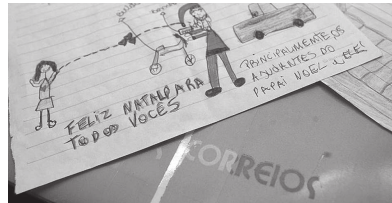 FELIZ NATAL PARA
TODOS VOCÊS
PRINCIPALMENTE OS
AJUDANTES DO
PAPAI NOEL
CORREIOS